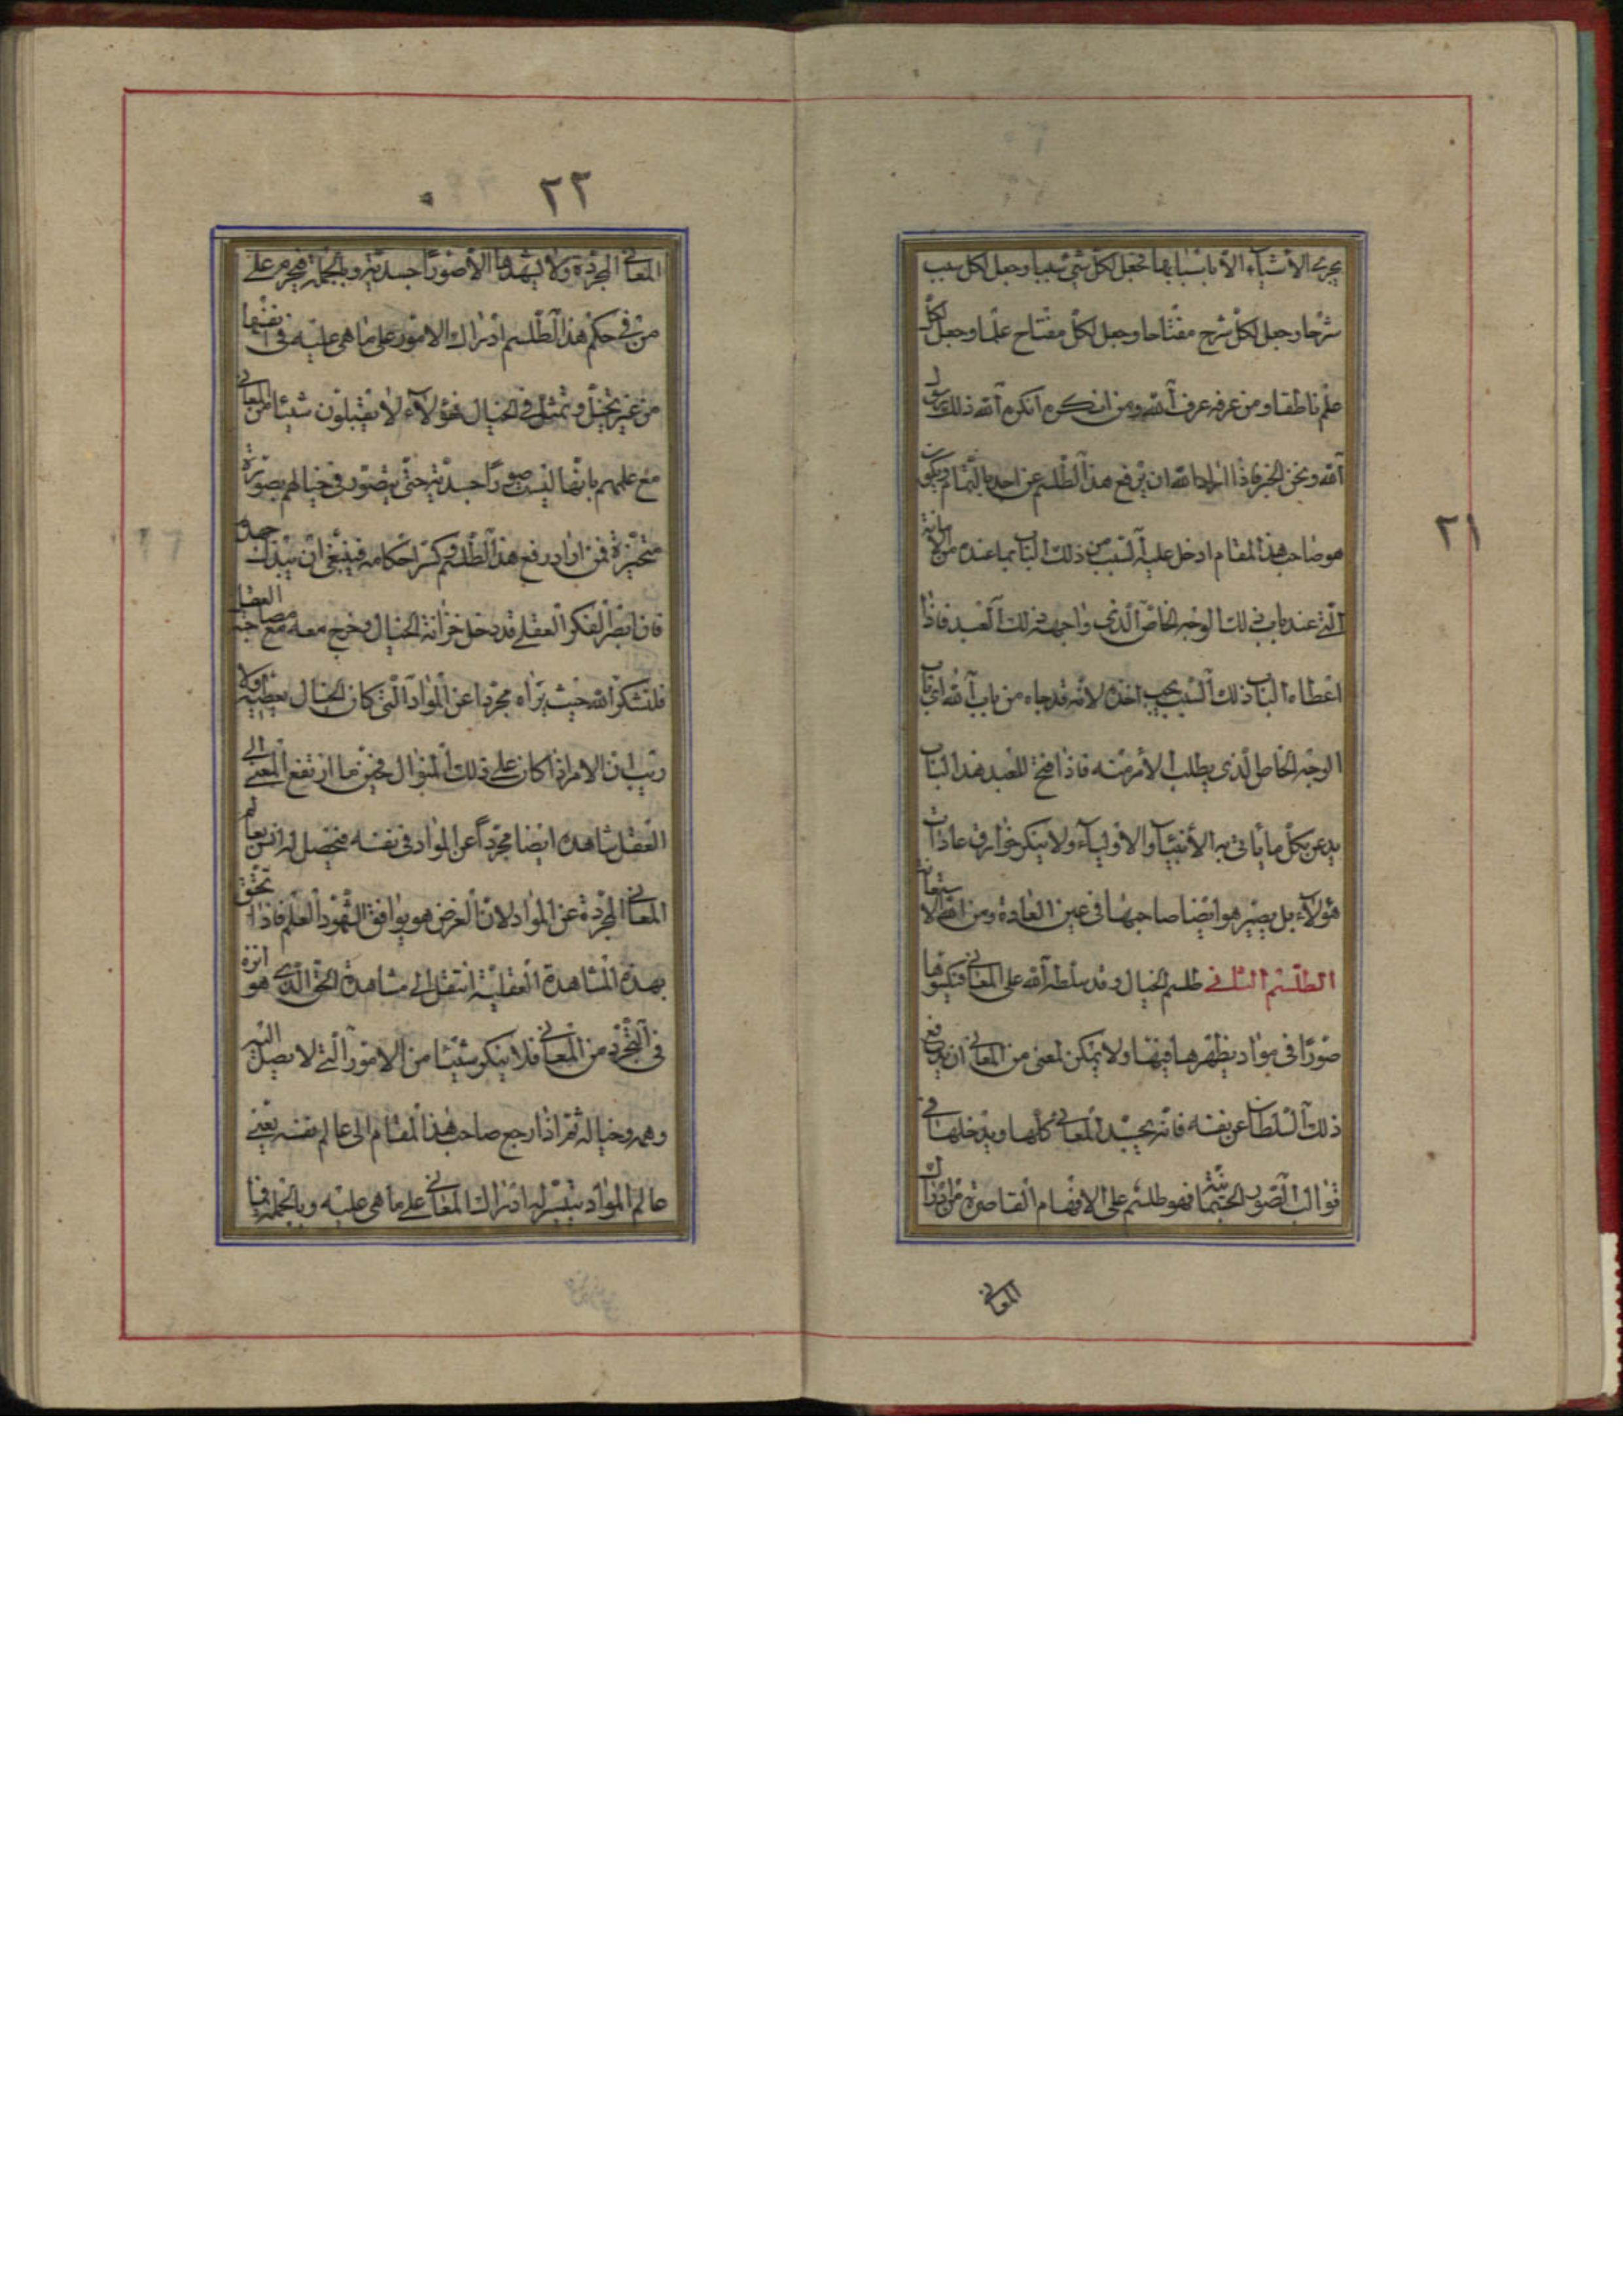 ٢١
يجري الأشياء الا باسبابها فجعل لكل شيء سببا وجعل لكل سبب
شرحا وجعل لكل شرح مفتاحا وجعل لكل مفتاح علما وجعل لكل
علم ناطقا ومن عرفه عرف الله ومن انكره انكره الله ذلك رسول
الله ونحن الخبر فاذا اراد الله ان يرفع هذا الطلسم عن احد بالتمام ويكون
هو صاحب هذا المقام ادخل عليه السبب من ذلك الباب بما عنده من الامانة
التي عنده باب في ذلك الوجه الخاص الذي واجهه ذلك العبد فاذا
اعطاه الباب ذلك السبب يجب اخذه لانه قد جاءه من باب الله اي باب
الوجه الخاص الذي يطلب الأمر منه فاذا فتح للعبد هذا الباب
يدعن بكل ما يأتي به الأنبياء والاولياء ولا ينكر خوارق عادات
هؤلاء بل يصير هو ايضا صاحبها في عين العادة ومن الله الاستعانة
الطلسم الثاني طلسم الخيال وقد سلطه الله على المعاني فيكسوها
صورا في مواد يظهرها فيها ولا يمكن لمعنى من المعاني ان يدفع
ذلك السلطان عن نفسه فانه يجسد المعاني كلها ويدخلها في
قوالب الصور الجسمانية فهو طلسم على الافهام القاصرة من ادراك
المعاني
٢٢
المعاني المجردة ولا يشهدها الا صورا جسدية وبالجملة فيحرم على
من في حكم هذا الطلسم ادراك الامور على ما هي عليه في انفسها
من غير تخيل وتمثل في الخيال فهؤلاء لا يقبلون شيئا من المعاني
مع علمهم بانها ليست صورا جسدية حتى يتصور في خيالهم بصورة
متحيزة فمن اراد رفع هذا الطلسم وكسر احكامه فينبغي ان يبذل جهده
فان ابصر الفكر العقلي قد دخل خزانة الخيال وخرج معه مع مصاحبه العقل
فليشكر الله حيث يراه مجردا عن المواد التي كان الخيال يعطيه ولا
ريب ان الامر اذا كان على ذلك المنوال فحين ما ارتفع المعنى الى
العقل شاهده ايضا مجردا عن المواد في نفسه فيحصل له انس بعالم
المعاني المجردة عن المواد لان الغرض هو يوافق الشهود العلم فاذا تحقق
بهذه المشاهدة العقلية انتقل الى مشاهدة الحق الذي هو انزه
في التجرد من المعاني فلا ينكر شيئا من الامور التي لا يصل اليه
وهمه وخياله ثم اذا رجع صاحب هذا المقام الى عالم نفسه يعني
عالم المواد يتيسر له ادراك المعاني على ما هي عليه وبالجملة فيما